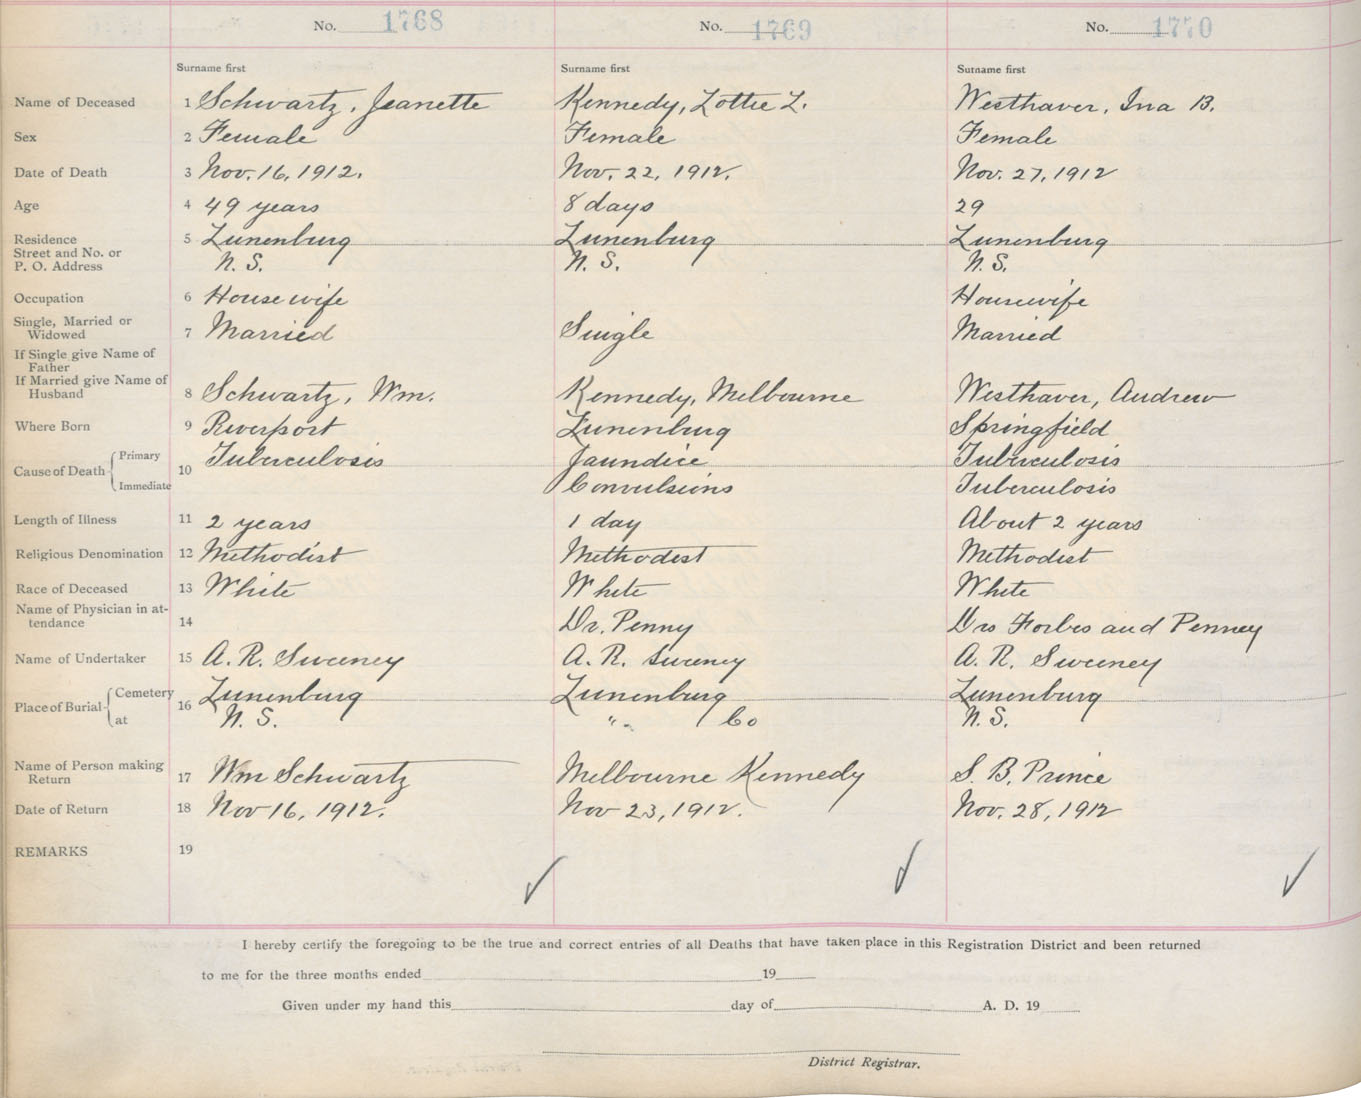 No. 1768 No. 1769 No. 1770
Surname first Surname first Surname first
Name of Deceased 1 Schwartz, Jeanette Kennedy, Lottie L. Westhaver, Ina B.
Sex 2 Female Female Female
Date of Death 3 Nov. 16, 1912. Nov. 22, 1912. Nov. 27, 1912
Age 4 49 years 8 days 29
Residence 5 Lunenburg Lunenburg Lunenburg
Street and No. or
P. O. Address N. S. N. S. N. S.
Occupation 6 Housewife Housewife
Single, Married or
Widowed 7 Married Single Married
If Single give Name of
Father
If Married give Name of
Husband 8 Schwartz, Wm. Kennedy, Melbourne Westhaver, Andrew
Where Born 9 Riverport Lunenburg Springfield
Cause of Death Primary 10 Tuberculosis Jaundice Tuberculosis
Immediate Convulsions Tuberculosis
Length of Illness 11 2 years 1 day About 2 years
Religious Denomination 12 Methodist Methodist Methodist
Race of Deceased 13 White White White
Name of Physician in at-
tendance 14 Dr. Penny Drs Forbes and Penney
Name of Undertaker 15 A. R. Sweeney A. R. Sweeney A. R. Sweeney
Place of Burial Cemetery 16 Lunenburg Lunenburg Lunenburg
at N. S. " Co N. S.
Name of Person making
Return 17 Wm Schwartz Melbourne Kennedy S. B. Prince
Date of Return 18 Nov 16, 1912. Nov 23, 1912. Nov. 28, 1912
REMARKS 19
I hereby certify the foregoing to be the true and correct entries of all Deaths that have taken place in this Registration District and been returned
to me for the three months ended 19
Given under my hand this day of A. D. 19
District Registrar.